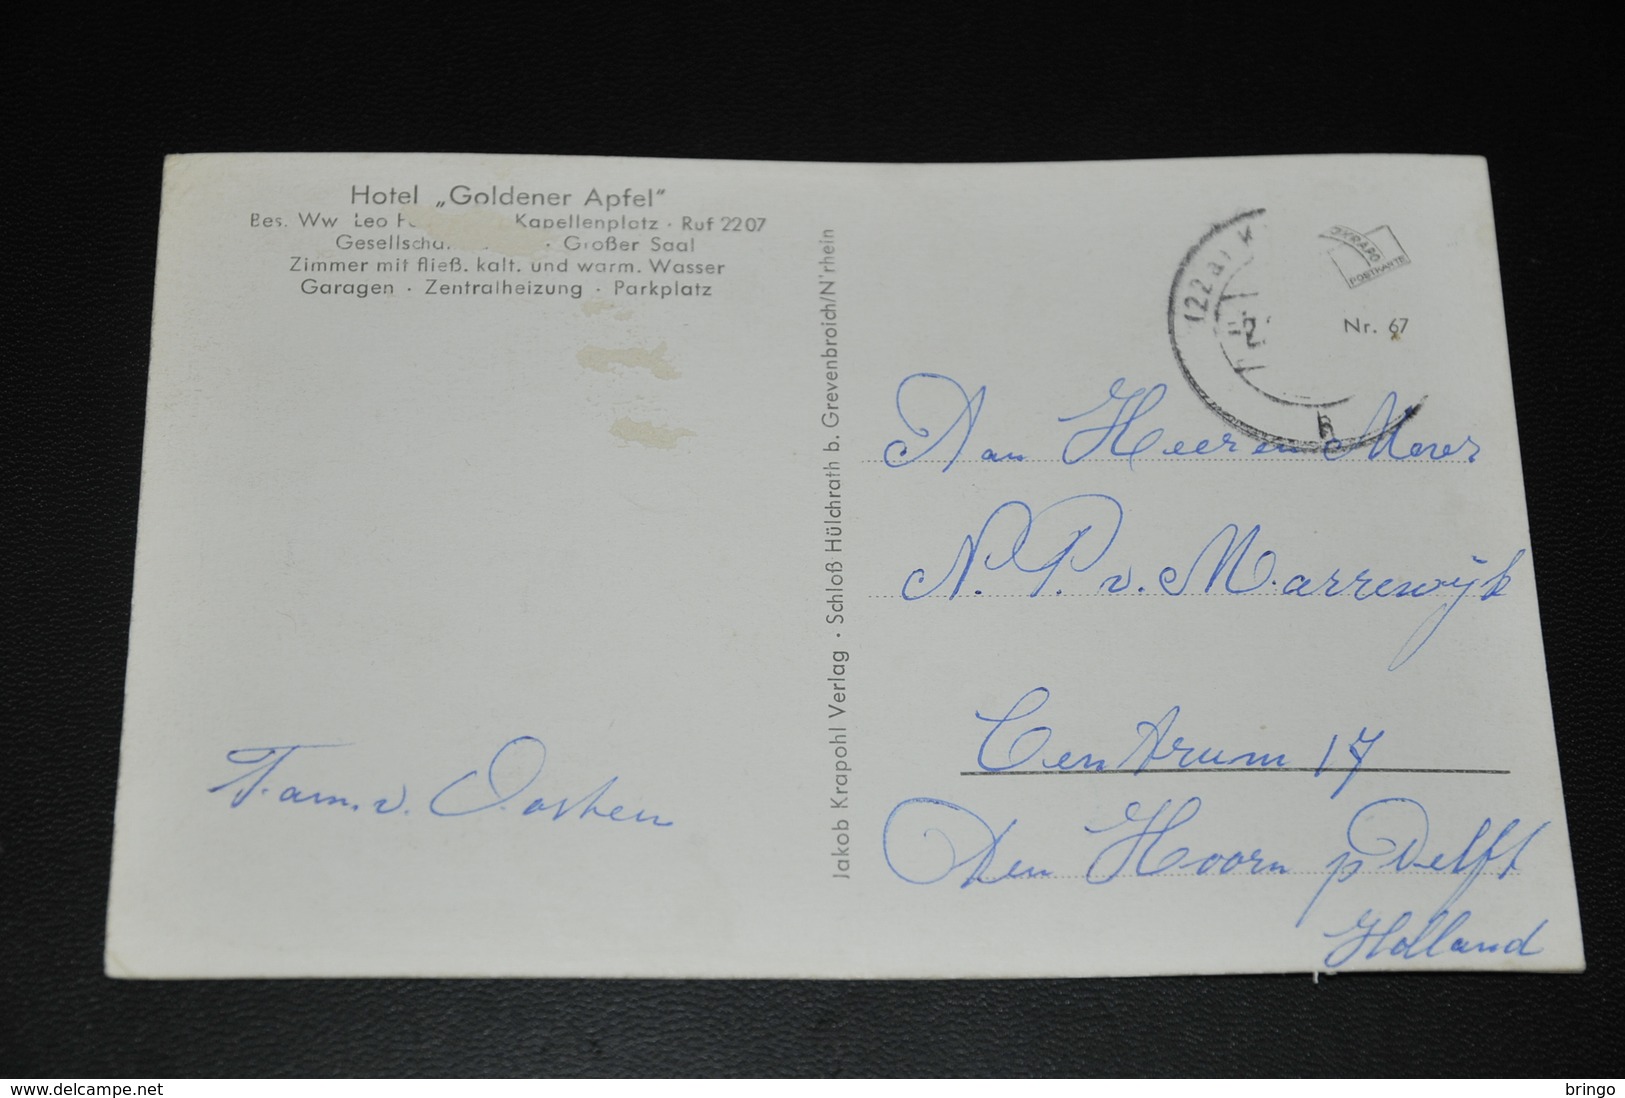 Hotel „Goldener Apfel"
Bes. Ww Leo Kapellenplatz · Ruf 2207
· Großer Saal
Zimmer mit fließ. kalt. und warm. Wasser
Garagen · Zentralheizung · Parkplatz
Fam. v. Oosten
Jakob Krapohl Verlag · Schloß Hülchrath b. Grevenbroich/N'rhein
KRAPO
POSTKARTE
Nr. 67
(22a) K
Aan Heer en Mevr
N. P. v. Marrewijk
Centrum 17
Den Hoorn p Delft
Holland
www.delcampe.net
bringo